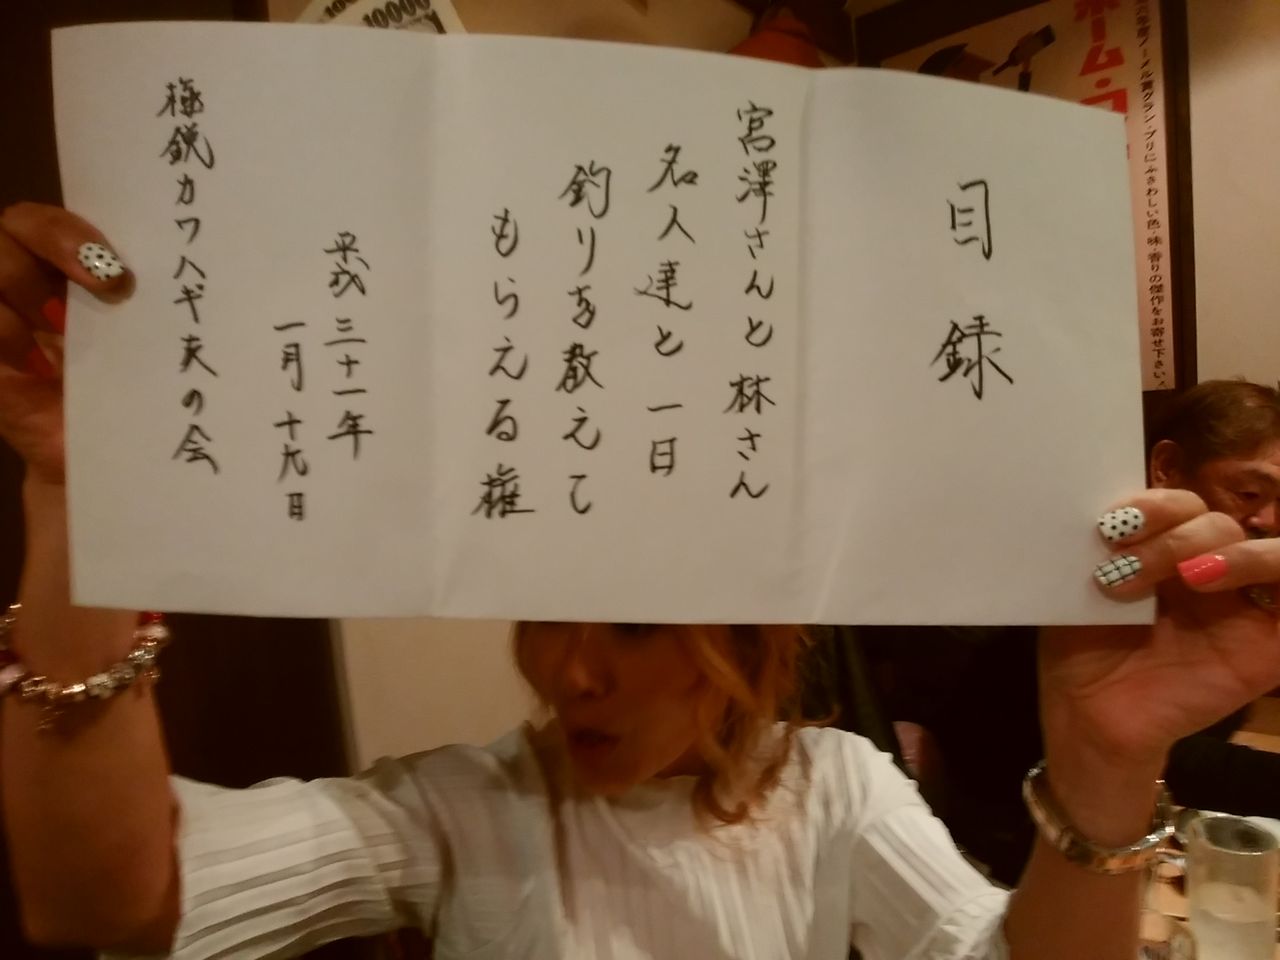 目録
宮澤さんと林さん
名人達と一日
釣りを教えて
もらえる権
平成三十一年
一月十九日
極鋭カワハギ夫の会
10000
ホーム・
メル賞グラン・プリにふさわしい色・味・香りの傑作をお寄せ下さい！